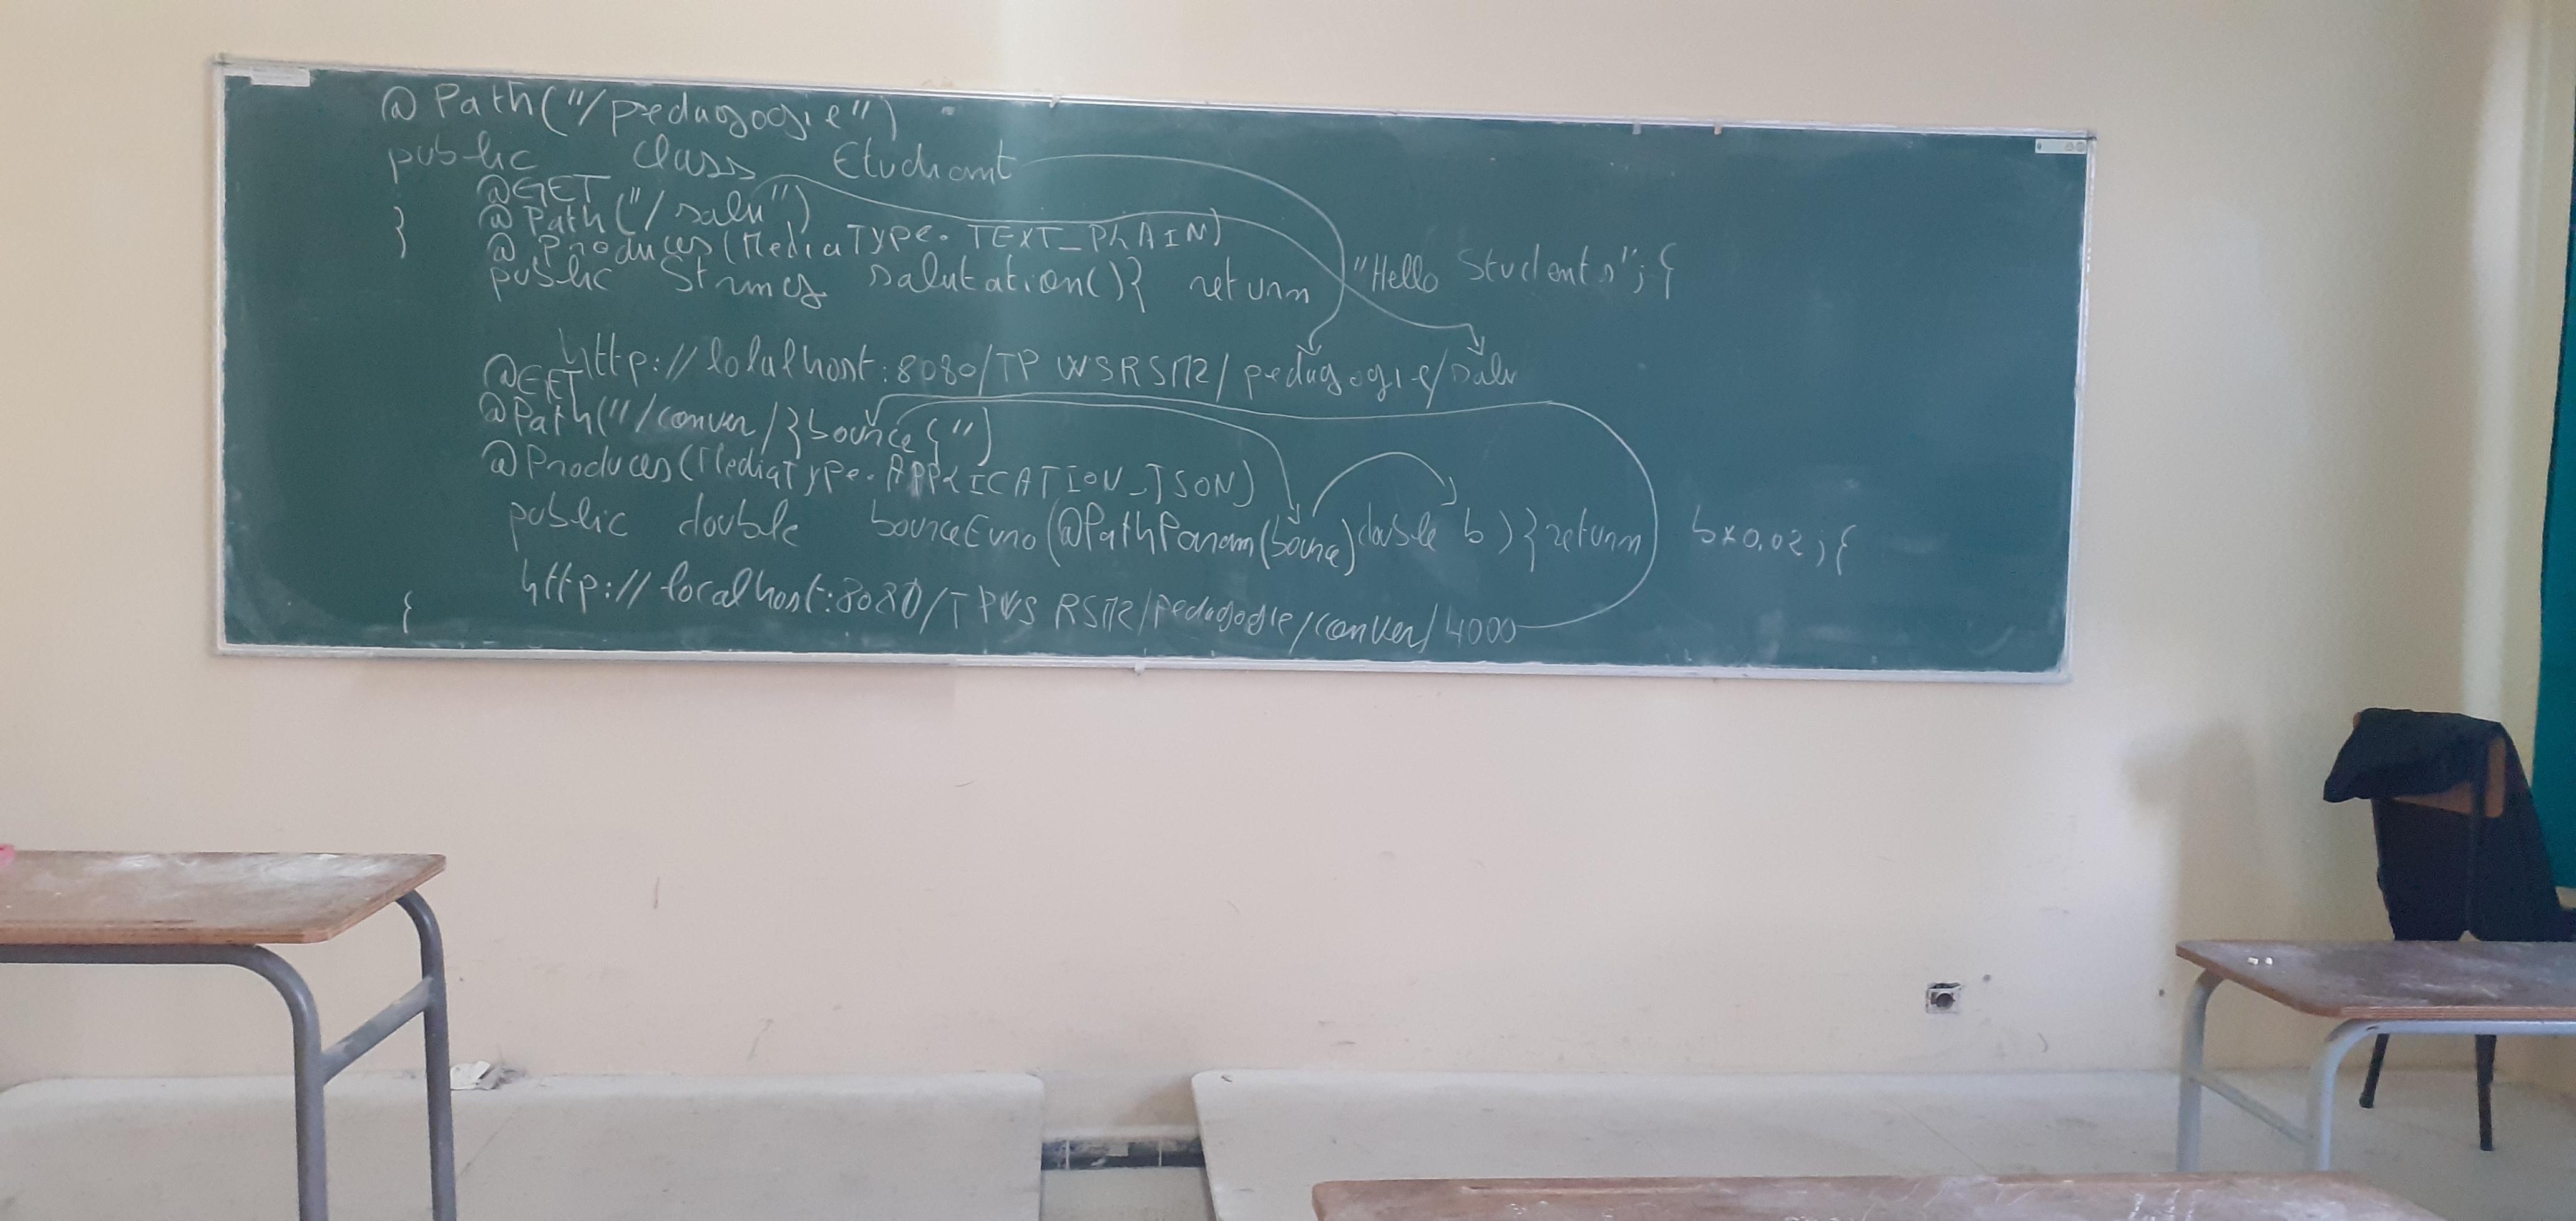 @Path("/pedagogie")
public class Etudiant
@GET
} @Path("/salu")
@Produces(MediaType.TEXT_PLAIN)
public String salutation()} return "Hello Students";{
http://lolalhost:8080/TP WSRSM2/pedagogie/salu
@GET
@Path("/conver/}bource{")
@Produces(MediaType.APPLICATION_JSON)
public double bourceEuro(@PathParam(bource)double b)}return b*0,02;{
http://localhost:8080/TPWS RSM2/pedagogie/conver/4000
{